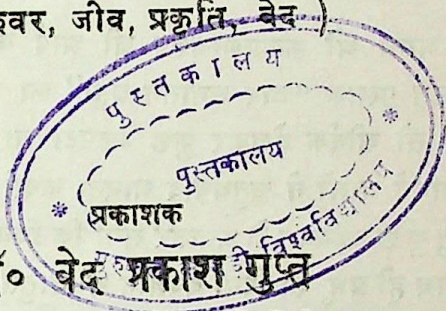 श्वर, जीव, प्रकृति, वेद )
पुस्तकालय
पुस्तकालय
प्रकाशक
विश्वविद्यालय
० वेद प्रकाश गुप्त